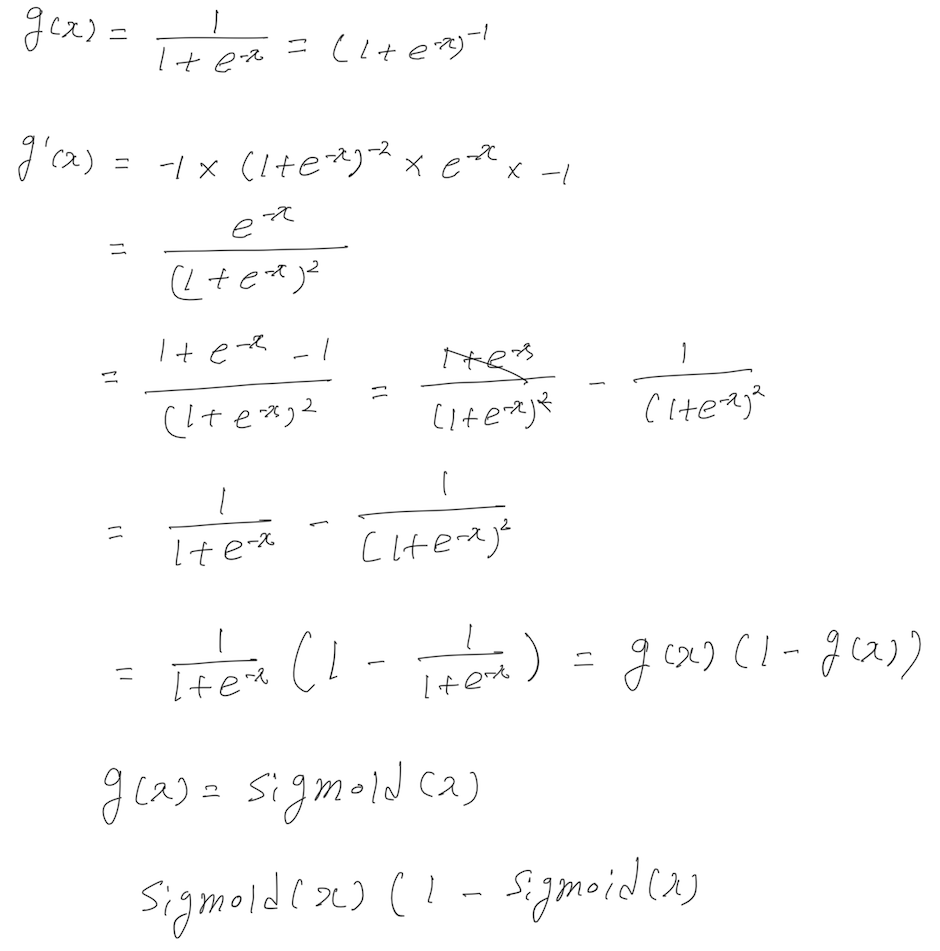 g(x) = 1/(1+e^-x) = (1+e^-x)^-1
g'(x) = -1 × (1+e^-x)^-2 × e^-x × -1
= e^-x/(1+e^-x)^2
= (1+e^-x -1)/(1+e^-x)^2 = (1+e^-x)/(1+e^-x)^2 - 1/(1+e^-x)^2
= 1/(1+e^-x) - 1/(1+e^-x)^2
= 1/(1+e^-x) (1 - 1/(1+e^-x)) = g(x) (1 - g(x))
g(x) = sigmoid (x)
sigmoid (x) (1 - sigmoid (x)